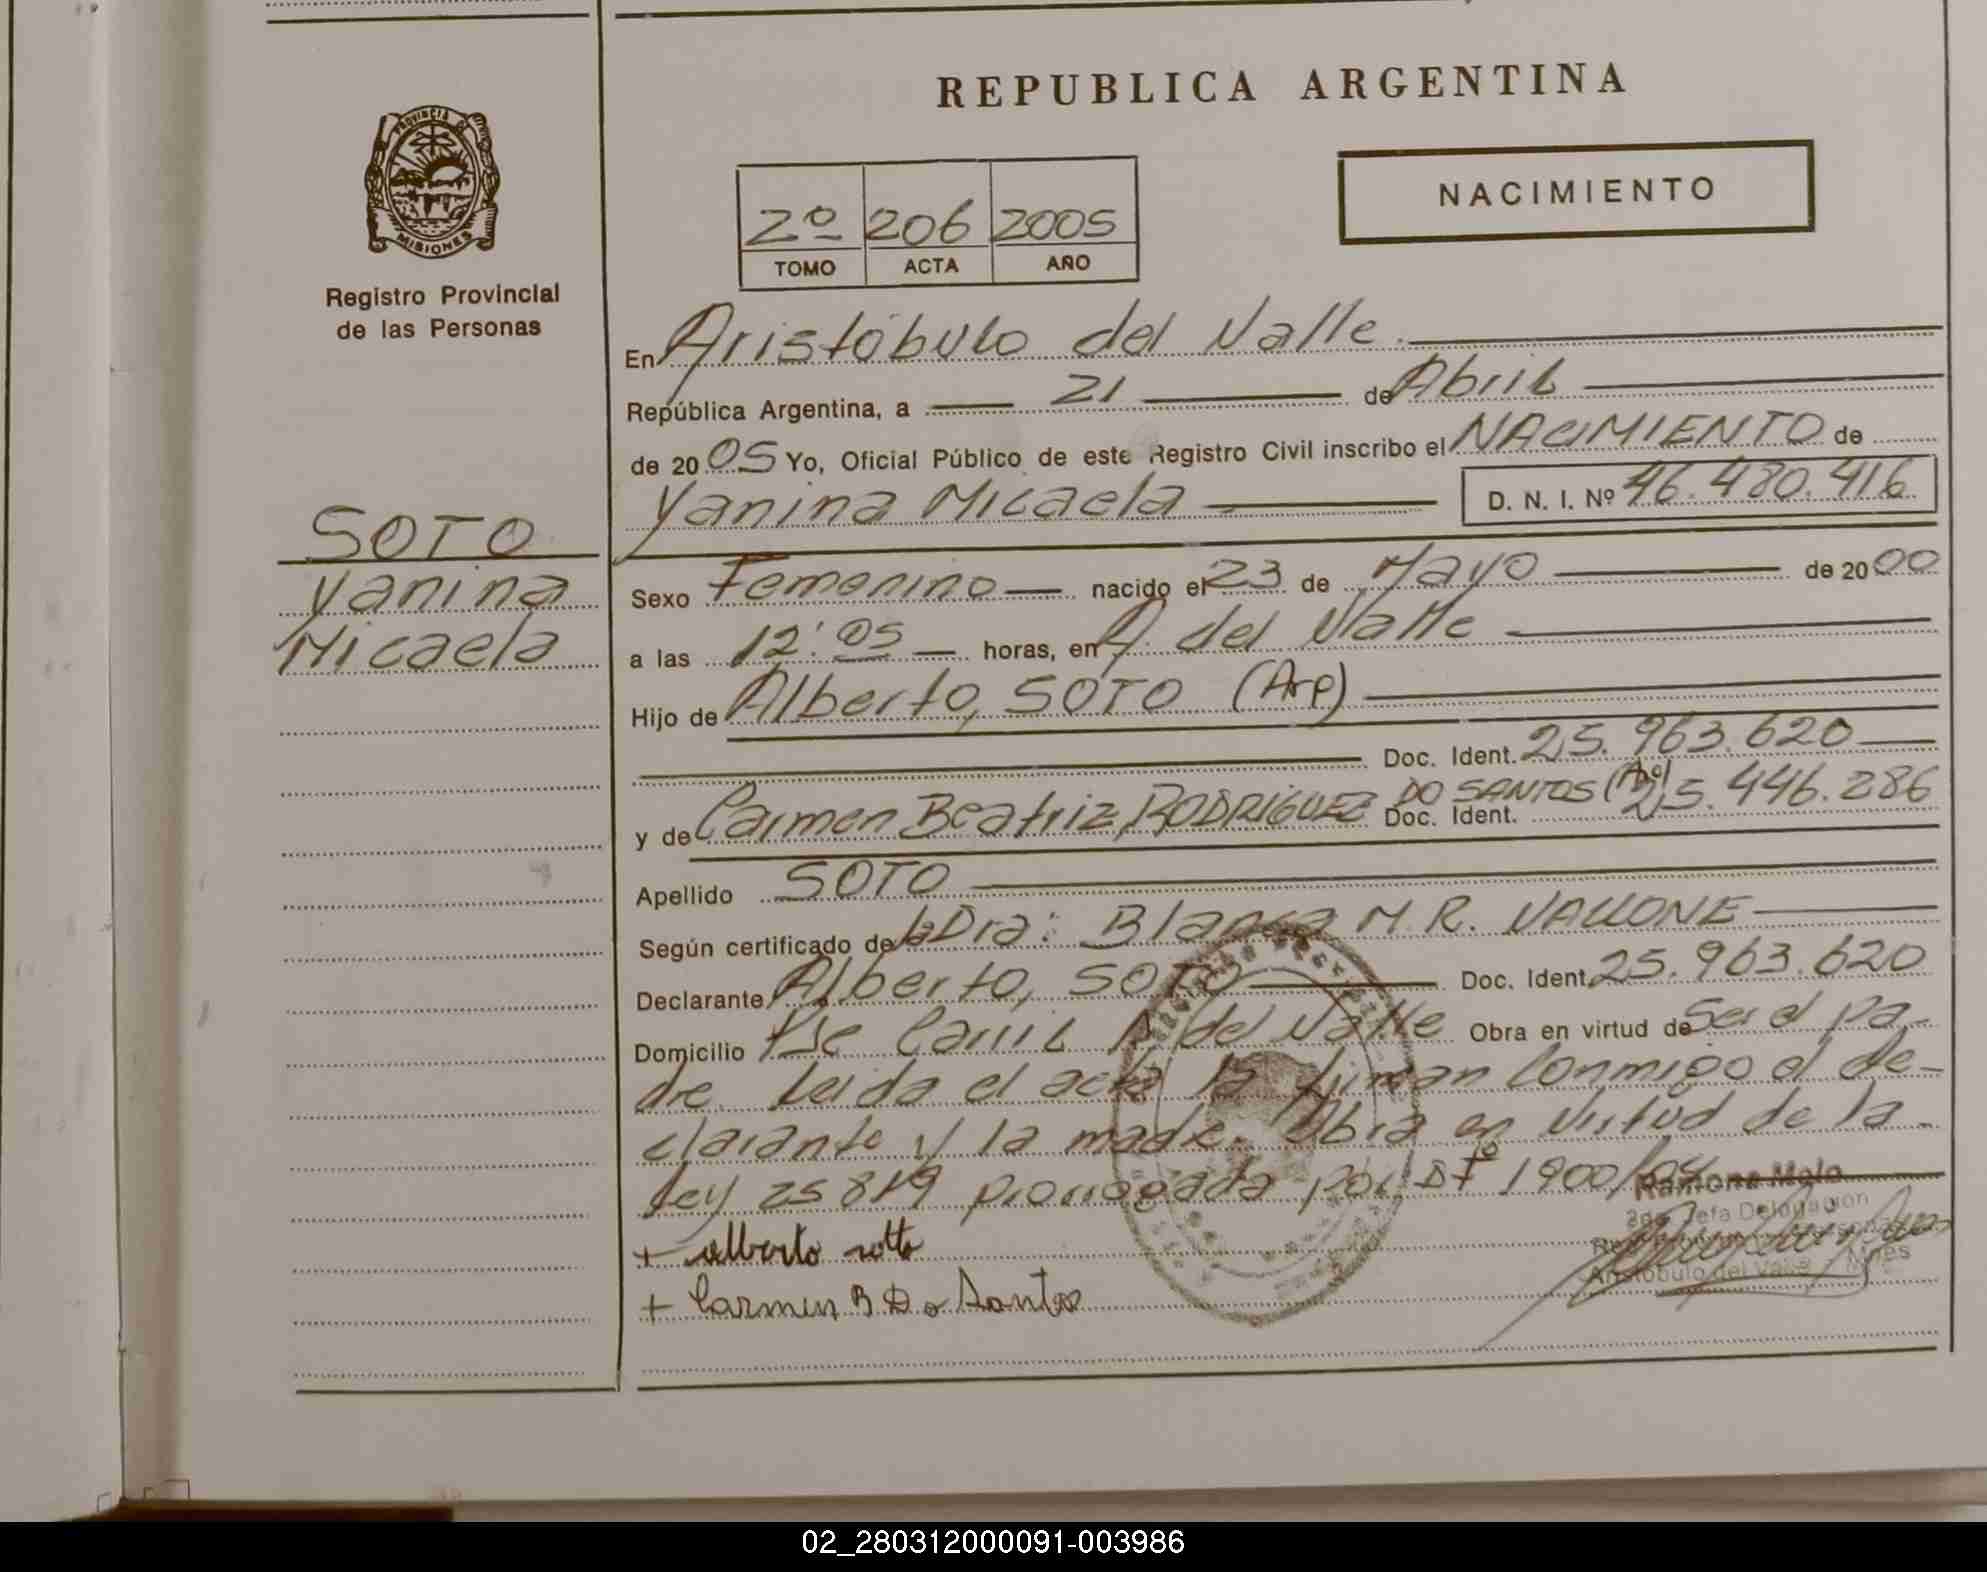 REPUBLICA ARGENTINA
PROVINCIA DE
MISIONES
Registro Provincial
de las Personas
NACIMIENTO
2º 206 2005
TOMO ACTA AÑO
En Aristóbulo del Valle.
República Argentina, a 21 de Abril
de 2005 Yo, Oficial Público de este Registro Civil inscribo el NACIMIENTO de
Yanina Micaela D. N. I. Nº 46.480.416
SOTO
Yanina
Micaela
Sexo Femenino nacido el 23 de Mayo de 2000
a las 12:05 horas, en A. del Valle
Hijo de Alberto, SOTO (Arg)
Doc. Ident. 25.963.620
y de Carmen Beatriz RODRIGUEZ DO SANTOS (Arg) Doc. Ident. 25.446.286
Apellido SOTO
Según certificado de la Dra: Blanca M. R. VALLONE
Declarante Alberto, SOTO Doc. Ident. 25.963.620
Domicilio A. del Valle Obra en virtud de Ser el pa-
dre. Leida el acta la firman Conmigo el de-
clarante y la madre. Obra en virtud de la
Ley 25819 prorrogada por DTº 1900/04
Ramona Melo
2da Jefa Delegación
Aristóbulo del Valle - Mnes
+ alberto sotto
+ Carmen B Do Santos
02_280312000091-003986